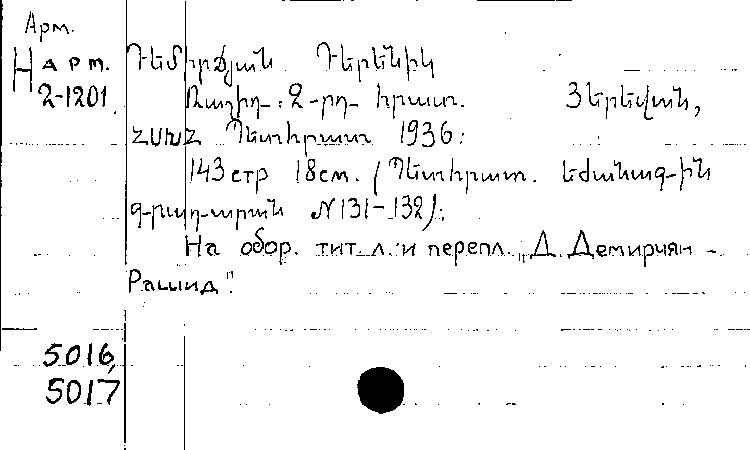 Арм.
Н арт. Դեմիրճյան Դերենիկ
2-1201 Ռաշիդ. 2-րդ հրատ. Յերեվան,
ՀՍԽՀ Պետհրատ 1936.
143 стр 18 см. (Պետհրատ. եժանագին
գրադարան N 131-132).
На обор. тит. л. и перепл. „Д. Демирчян -
Рашид".
5016,
5017